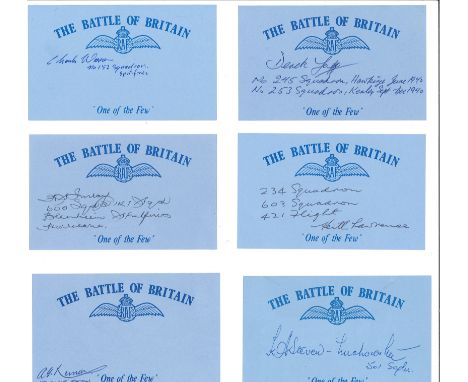 THE BATTLE OF BRITAIN
RAF
Squadron,
Spitfires
"One of the Few"
THE BATTLE OF BRITAIN
RAF
Derek
No 245 Squadron, Hawkinge June 1940
No 253 Squadron, Kenley Sept 1940
"One of the Few"
THE BATTLE OF BRITAIN
RAF
600
Blenheim
Hurricane.
"One of the Few"
THE BATTLE OF BRITAIN
RAF
234 Squadron
603 Squadron
421 Flight
Keith Lawrence
"One of the Few"
THE BATTLE OF BRITAIN
RAF
"One of the Few"
THE BATTLE OF BRITAIN
RAF
501 Sqdn.
"One of the Few"